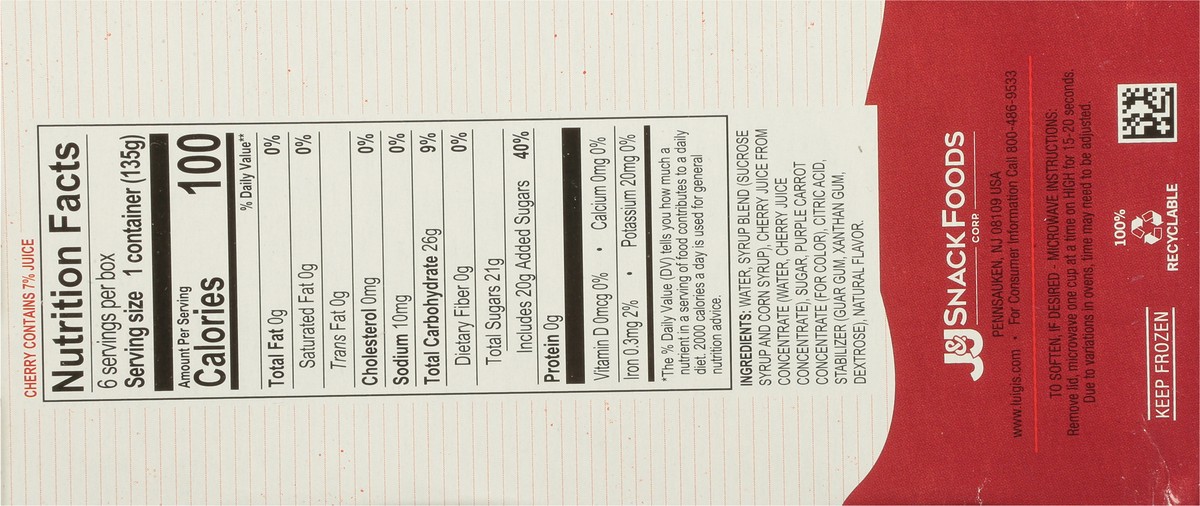 CHERRY CONTAINS 7% JUICE
Nutrition Facts
6 servings per box
Serving size 1 container (135g)
Amount Per Serving
Calories 100
% Daily Value**
Total Fat 0g 0%
Saturated Fat 0g 0%
Trans Fat 0g
Cholesterol 0mg 0%
Sodium 10mg 0%
Total Carbohydrate 26g 9%
Dietary Fiber 0g 0%
Total Sugars 21g
Includes 20g Added Sugars 40%
Protein 0g
Vitamin D 0mcg 0% • Calcium 0mg 0%
Iron 0.3mg 2% • Potassium 20mg 0%
*The % Daily Value (DV) tells you how much a
nutrient in a serving of food contributes to a daily
diet. 2000 calories a day is used for general
nutrition advice.
INGREDIENTS: WATER, SYRUP BLEND (SUCROSE
SYRUP AND CORN SYRUP), CHERRY JUICE FROM
CONCENTRATE (WATER, CHERRY JUICE
CONCENTRATE), SUGAR, PURPLE CARROT
CONCENTRATE (FOR COLOR), CITRIC ACID,
STABILIZER (GUAR GUM, XANTHAN GUM,
DEXTROSE), NATURAL FLAVOR.
J&J SNACK FOODS
CORP.
PENNSAUKEN, NJ 08109 USA
www.luigis.com • For Consumer Information Call 800-486-9533
TO SOFTEN, IF DESIRED - MICROWAVE INSTRUCTIONS:
Remove lid, microwave one cup at a time on HIGH for 15-20 seconds.
Due to variations in ovens, time may need to be adjusted.
KEEP FROZEN
100%
RECYCLABLE